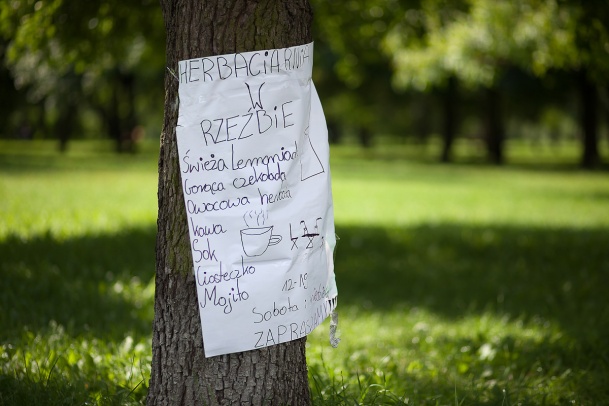 HERBACIARNIA
W
RZEŹBIE
Świeża Lemoniad
Gorąca czekolada
Owocowa herbata
kawa
Sok
Ciasteczko
Mojito
12-19
Sobota i
ZAPRASZAMY